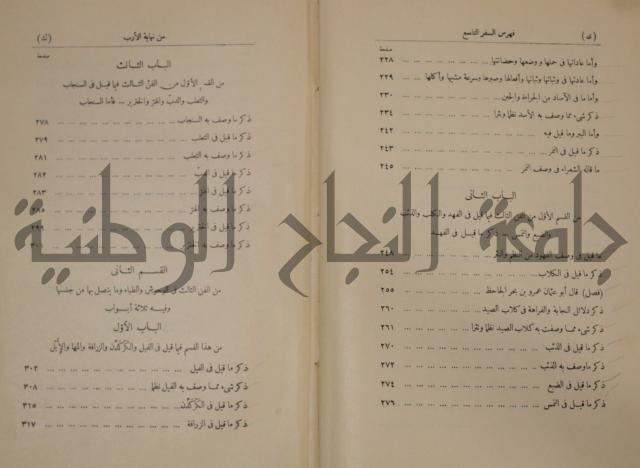 (ى) فهرس السفر التاسع
صفحة
وأما عاداتها فى حملها ووضعها وحضانتها ... ٢٢٨
وأما عادتها فى وثباتها وثباتها وأفعالها وصبرها وسرعة مشيها وأكلها ... ٢٢٩
وأما ما فى الآساد من الجراءة والجبن ... ٢٣٠
ذكر شىء مما وصف به الأسد نظما ونثرا ... ٢٣٤
وأما الببر وما قيل فيه ... ٢٤٢
ذكر ما قيل فى النمر ... ٢٤٣
ما قاله الشعراء فى وصف النمر ... ٢٤٥
الباب الثانى
من القسم الأول من الفن الثالث فيما قيل فى الفهد والكلب والذئب
والضبع والنمس ... ذكر ما قيل فى الفهد
ما قيل فى وصف الفهود من النظم والنثر ... ٢٤٨
ذكر ما قيل فى الكلاب ... ٢٥٤
(فصل) قال أبو عثمان عمرو بن بحر الجاحظ ... ٢٥٥
ذكر دلائل النجابة والفراهة فى كلاب الصيد ... ٢٦٠
ذكر شىء مما وصفت به كلاب الصيد نظما ونثرا ... ٢٦١
ذكر ما قيل فى الذئب ... ٢٧٠
ذكر ما وصف به الذئب ... ٢٧٢
ذكر ما قيل فى الضبع ... ٢٧٤
ذكر ما قيل فى النمس ... ٢٧٦
من نهاية الأرب (ك)
صفحة
الباب الثالث
من القسم الأول من الفن الثالث فيما قيل فى السنجاب
والثعلب والدب والهر والخنزير ... فأما السنجاب
ذكر ما وصف به السنجاب ... ٢٧٨
ذكر ما قيل فى الثعلب ... ٢٧٩
ذكر ما وصف به الثعلب ... ٢٨١
ذكر ما قيل فى الدب ... ٢٨٢
ذكر ما قيل فى الهر ... ٢٨٣
ذكر ما وصف به الهر ... ٢٨٥
ذكر ما قيل فى الخنزير ... ٢٩٩
ذكر ما وصف به الخنزير ... ٣٠١
القسم الثانى
من الفن الثالث فى الوحوش والظباء وما يتصل بها من جنسها
وفيه ثلاثة أبواب
الباب الأول
من هذا القسم فيما قيل فى الفيل والكركدن والزرافة والمها والإيل
ذكر ما قيل فى الفيل ... ٣٠٢
ذكر شىء مما وصف به الفيل نظما ... ٣٠٨
ذكر ما قيل فى الكركدن ... ٣١٥
ذكر ما قيل فى الزرافة ... ٣١٧
جامعة النجاح الوطنية